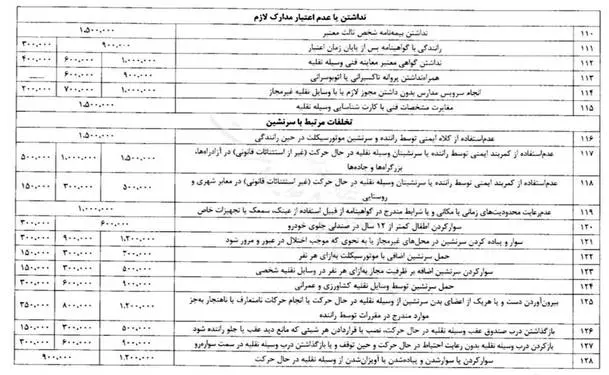 نداشتن یا عدم اعتبار مدارک لازم
۱۱۰ نداشتن بیمه‌نامه شخص ثالث معتبر ۱،۵۰۰،۰۰۰
۱۱۱ رانندگی با گواهینامه پس از پایان زمان اعتبار ۹۰۰،۰۰۰ ۳۰۰،۰۰۰
۱۱۲ نداشتن گواهی معتبر معاینه فنی وسیله نقلیه ۱،۰۰۰،۰۰۰ ۶۰۰،۰۰۰ ۴۰۰،۰۰۰
۱۱۳ همراه‌نداشتن پروانه تاکسیرانی یا اتوبوسرانی ۹۰۰،۰۰۰ ۶۰۰،۰۰۰ —
۱۱۴ انجام سرویس مدارس بدون داشتن مجوز لازم یا با وسایل نقلیه غیرمجاز ۱،۰۰۰،۰۰۰ ۷۰۰،۰۰۰ ۲۰۰،۰۰۰
۱۱۵ مغایرت مشخصات فنی با کارت شناسایی وسیله نقلیه ۱،۵۰۰،۰۰۰
تخلفات مرتبط با سرنشین
۱۱۶ عدم‌استفاده از کلاه ایمنی توسط راننده و سرنشین موتورسیکلت در حین رانندگی ۱،۵۰۰،۰۰۰
۱۱۷ عدم‌استفاده از کمربند ایمنی توسط راننده یا سرنشینان وسیله نقلیه در حال حرکت (غیر از استثنائات قانونی) در آزادراه‌ها، ۱،۵۰۰،۰۰۰ ۱،۰۰۰،۰۰۰ ۵۰۰،۰۰۰
بزرگراه‌ها و جاده‌ها
۱۱۸ عدم‌استفاده از کمربند ایمنی توسط راننده یا سرنشینان وسیله نقلیه در حال حرکت (غیر استثنائات قانونی) در معابر شهری و ۵۰۰،۰۰۰ ۳۰۰،۰۰۰ ۱۵۰،۰۰۰
روستایی
۱۱۹ عدم‌رعایت محدودیت‌های زمانی یا مکانی و یا شرایط مندرج در گواهینامه از قبیل استفاده از عینک، سمعک یا تجهیزات خاص ۱،۰۰۰،۰۰۰
۱۲۰ سوارکردن اطفال کمتر از ۱۲ سال در صندلی جلوی خودرو ۶۰۰،۰۰۰ ۳۰۰،۰۰۰
۱۲۱ سوار و پیاده کردن سرنشین در محل‌های غیرمجاز یا به نحوی که موجب اختلال در عبور و مرور شود ۱،۲۰۰،۰۰۰ ۹۰۰،۰۰۰ ۳۰۰،۰۰۰
۱۲۲ حمل سرنشین اضافی با موتورسیکلت به‌ازای هر نفر ۳۰۰،۰۰۰ ۳۰۰،۰۰۰ ۱۵۰،۰۰۰
۱۲۳ سوارکردن سرنشین اضافه بر ظرفیت مجاز به‌ازای هر نفر در وسایل نقلیه شخصی ۵۰۰،۰۰۰ ۳۰۰،۰۰۰ ۱۵۰،۰۰۰
۱۲۴ حمل سرنشین توسط وسایل نقلیه کشاورزی و عمرانی ۹۰۰،۰۰۰ ۶۰۰،۰۰۰ ۳۰۰،۰۰۰
۱۲۵ بیرون‌آوردن دست و یا هریک از اعضای بدن سرنشین از وسیله نقلیه در حال حرکت یا انجام حرکات نامتعارف یا ناهنجار به‌جز ۱،۲۰۰،۰۰۰ ۸۰۰،۰۰۰ ۳۵۰،۰۰۰
موارد مندرج در مقررات توسط راننده
۱۲۶ بازگذاشتن درب صندوق عقب وسیله نقلیه در حال حرکت، نصب یا قراردادن هر شیئی که مانع دید عقب یا جلو راننده شود ۵۰۰،۰۰۰ ۳۰۰،۰۰۰ ۱۵۰،۰۰۰
۱۲۷ بازکردن درب وسیله نقلیه بدون رعایت احتیاط در حال حرکت و حین توقف و یا بازگذاشتن درب وسیله نقلیه در سمت سواره‌رو ۹۰۰،۰۰۰ ۶۰۰،۰۰۰ ۳۰۰،۰۰۰
۱۲۸ سوارکردن یا سوارشدن و پیاده‌شدن یا آویزان‌شدن از وسیله نقلیه در حال حرکت ۱،۲۰۰،۰۰۰ ۹۰۰،۰۰۰